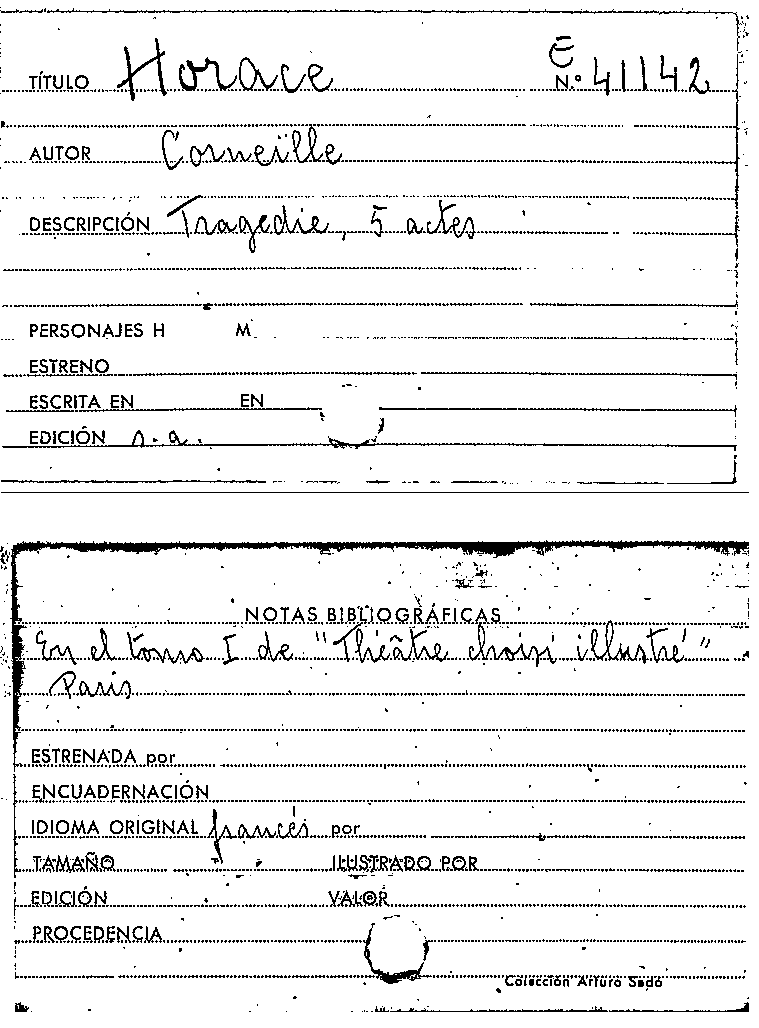 E
TÍTULO Horace N.º 41142
AUTOR Corneïlle
DESCRIPCIÓN Tragedie, 5 actes
PERSONAJES H M.
ESTRENO
ESCRITA EN EN
EDICIÓN s.a.
NOTAS BIBLIOGRÁFICAS
En el tomo I de "Théâtre choisi illustré"
Paris
ESTRENADA por
ENCUADERNACIÓN
IDIOMA ORIGINAL francés por
TAMAÑO ILUSTRADO POR
EDICIÓN VALOR
PROCEDENCIA
Colección Arturo Sedó